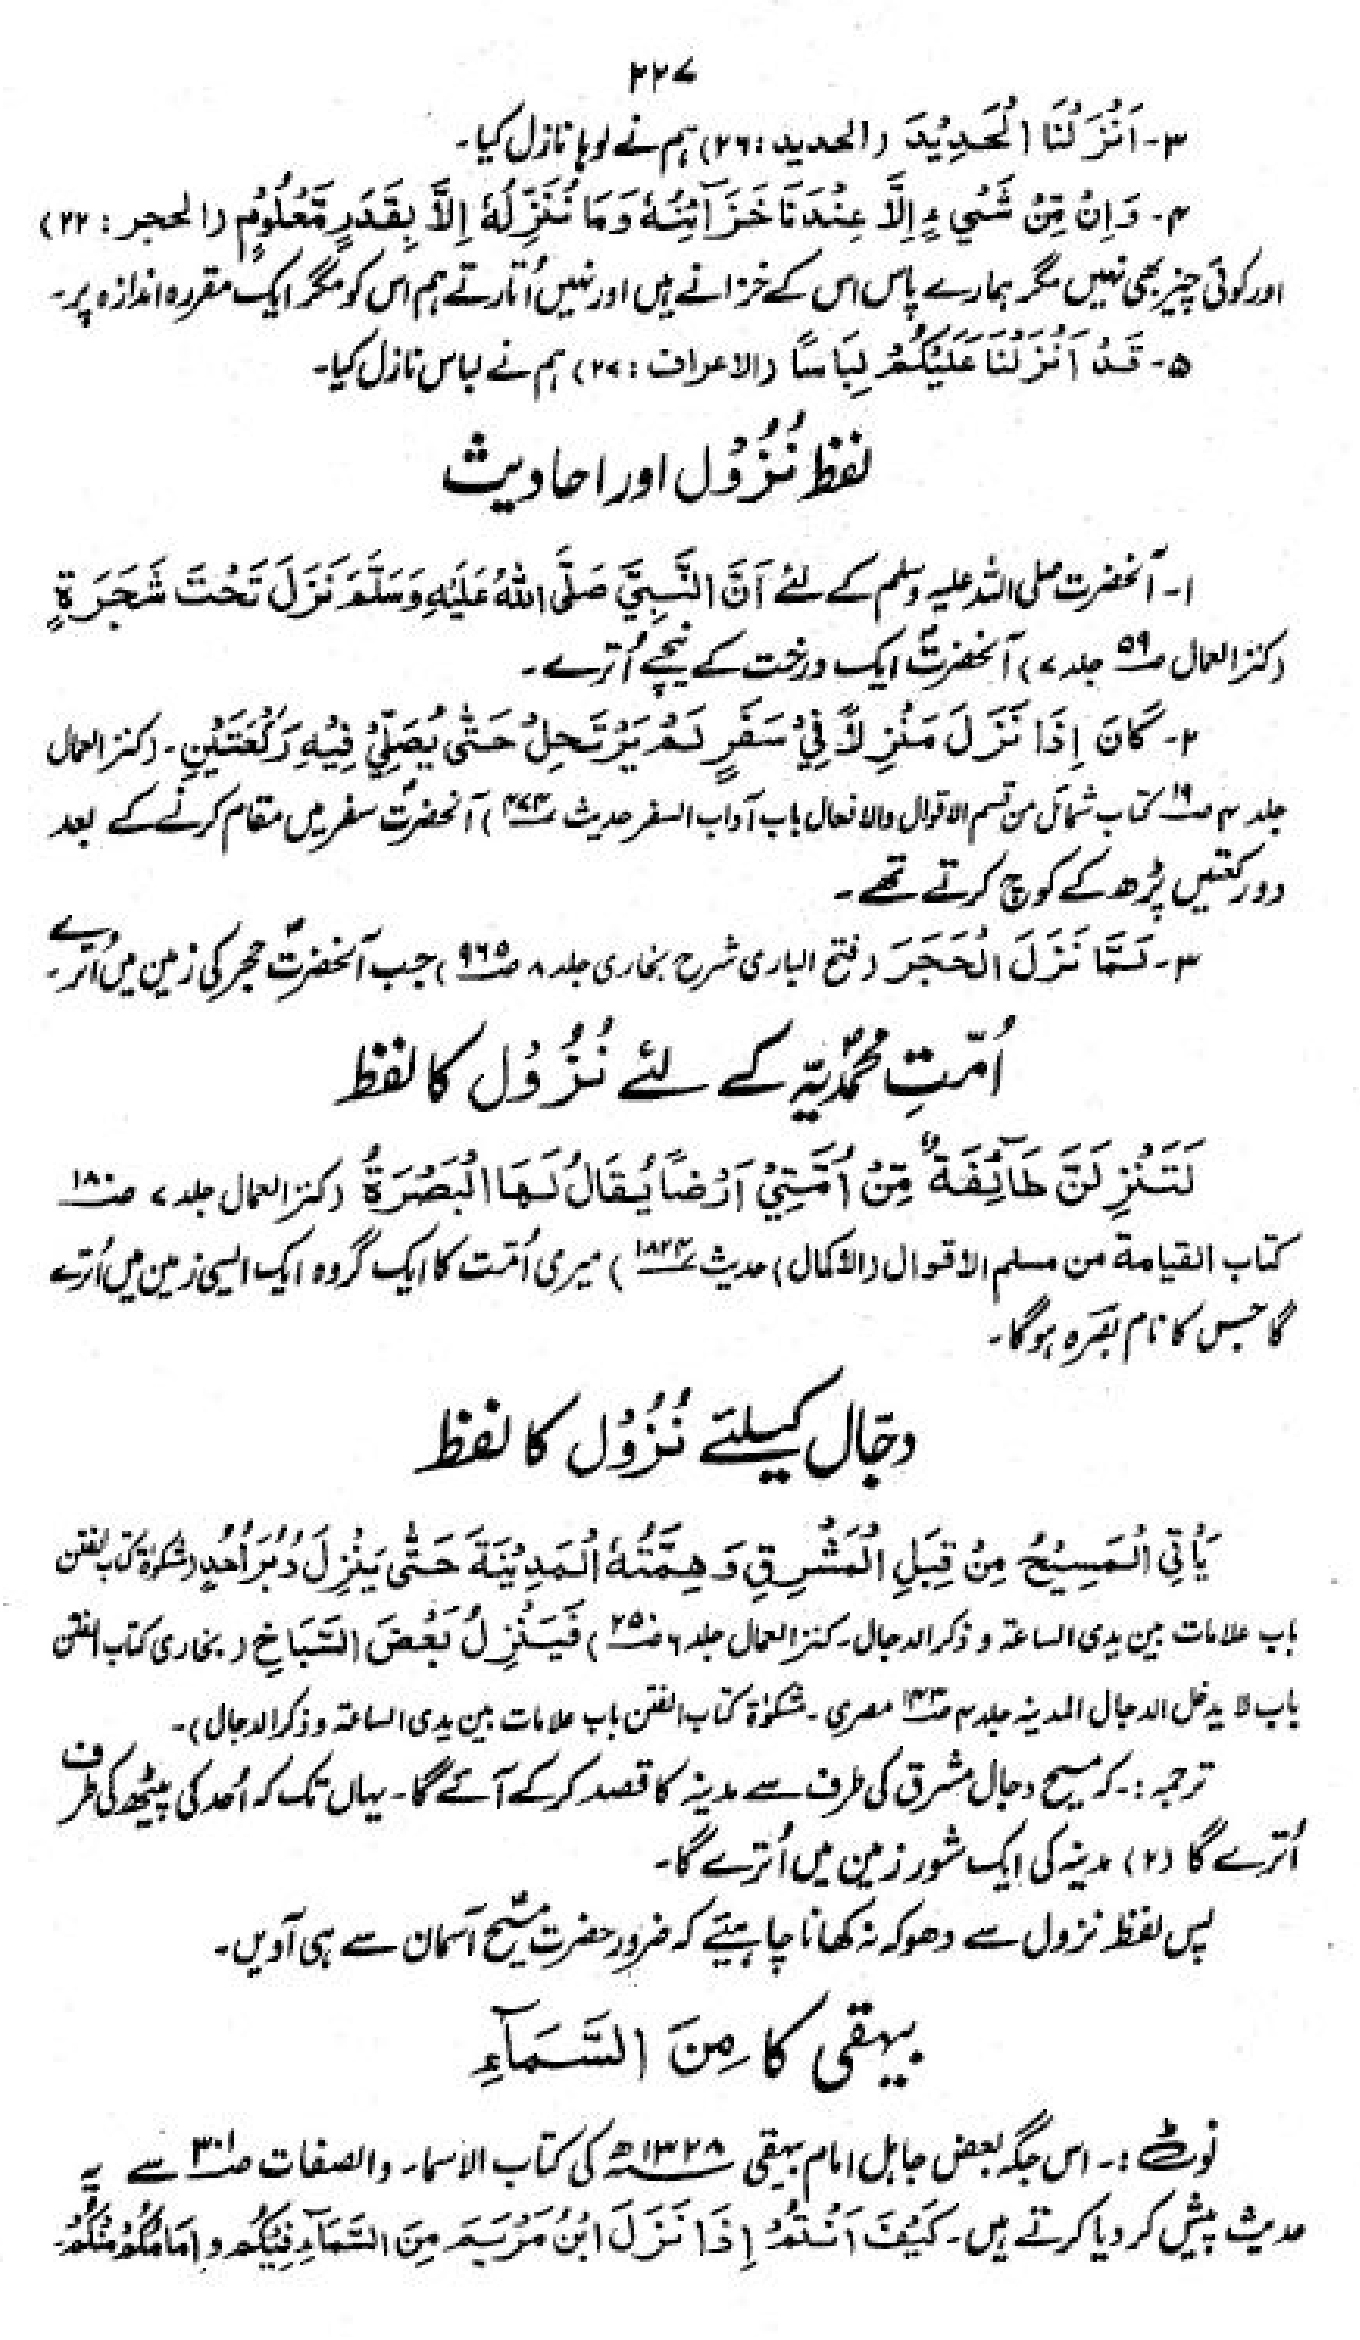 ۲۲۷
۳۔ اَنْزَلْنَا الْحَدِيْدَ (الحدید : ۲۶) ہم نے لوہا نازل کیا۔
۴۔ وَاِنْ مِّنْ شَیْءٍ اِلَّا عِنْدَنَا خَزَآئِنُهٗ وَمَا نُنَزِّلُهٗ اِلَّا بِقَدَرٍ مَّعْلُوْمٍ (الحجر : ۲۲)
اور کوئی چیز بھی نہیں مگر ہمارے پاس اس کے خزانے ہیں اور نہیں اُتارتے ہم اس کو مگر ایک مقررہ اندازہ پر۔
۵۔ قَدْ اَنْزَلْنَا عَلَيْكُمْ لِبَاسًا (الاعراف : ۲۷) ہم نے لباس نازل کیا۔
لفظ نُزُوْل اور احادیث
۱۔ آنحضرت صلی اللہ علیہ وسلم کے لئے اَنَّ النَّبِيَّ صَلَّى اللهُ عَلَيْهِ وَسَلَّمَ نَزَلَ تَحْتَ شَجَرَةٍ
(کنز العمال ص۵۹ جلد ۷) آنحضرتؐ ایک درخت کے نیچے اُترے۔
۲۔ كَانَ اِذَا نَزَلَ مَنْزِلًا فِيْ سَفَرٍ لَمْ يَرْتَحِلْ حَتّٰى يُصَلِّيْ فِيْهِ رَكْعَتَيْنِ۔ (کنز العمال
جلد ۴ ص۱۹ کتاب شمائل من قسم الاقوال والافعال باب آداب السفر حدیث ) آنحضرتؐ سفر میں مقام کرنے کے بعد
دو رکعتیں پڑھ کے کوچ کرتے تھے۔
۳۔ لَمَّا نَزَلَ الْحَجَرَ (فتح الباری شرح بخاری جلد ۸ ص۹۶۵) جب آنحضرتؐ حجر کی زمین میں اُترے۔
اُمّتِ محمدؐیّہ کے لئے نُزُوْل کا لفظ
لَتَنْزِلَنَّ طَآئِفَةٌ مِّنْ اُمَّتِيْ اَرْضًا يُقَالُ لَهَا الْبَصْرَةُ (کنز العمال جلد ۷ ص۱۸۰
کتاب القیامۃ من مسلم الاقوال (الاکمال) حدیث ۱۸۲۳) میری اُمّت کا ایک گروہ ایک ایسی زمین میں اُترے
گا جس کا نام بصَرہ ہوگا۔
دجّال کیلئے نُزُوْل کا لفظ
يَأْتِي الْمَسِيْحُ مِنْ قِبَلِ الْمَشْرِقِ وَهِمَّتُهٗ الْمَدِيْنَةَ حَتّٰى يَنْزِلَ دُبُرَ اُحُدٍ (مشکوٰۃ کتاب الفتن
باب علامات بین یدی الساعۃ و ذکر الدجال۔ کنز العمال جلد ۶ ص۲۵۰) فَيَنْزِلُ بَعْضَ السَّبَاخِ (بخاری کتاب الفتن
باب لا یدخل الدجال المدینہ جلد ۴ ص۱۴۳ مصری۔ مشکوٰۃ کتاب الفتن باب علامات بین یدی الساعۃ و ذکر الدجال)۔
ترجمہ:۔ کہ مسیح دجال مشرق کی طرف سے مدینہ کا قصد کر کے آئے گا۔ یہاں تک کہ اُحد کی پیٹھ کی طرف
اُترے گا (۲) مدینہ کی ایک شور زمین میں اُترے گا۔
پس لفظ نزول سے دھوکہ نہ کھانا چاہیئے کہ ضرور حضرت مسیحؑ آسمان سے ہی آویں۔
بیہقی کا مِنَ السَّمَآءِ
نوٹ:۔ اس جگہ بعض جاہل امام بیہقی ۱۳۲۸ھ کی کتاب الاسماء والصفات ص۳۰۱ سے یہ
حدیث پیش کر دیا کرتے ہیں۔ كَيْفَ اَنْتُمْ اِذَا نَزَلَ ابْنُ مَرْيَمَ مِنَ السَّمَآءِ فِيْكُمْ وَاِمَامُكُمْ مِنْكُمْ۔